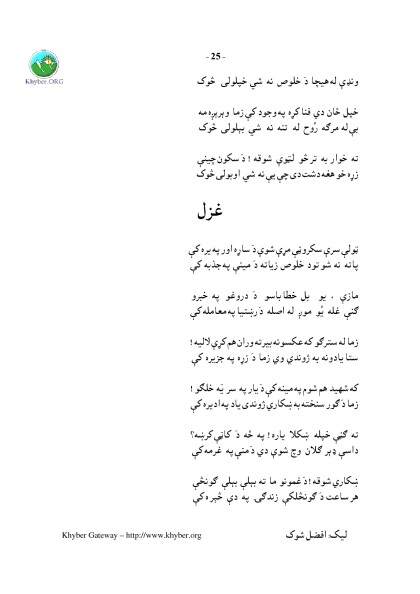 - 25 -
Khyber.ORG
وندې له هيچا دَ خلوص نه شي خپلولى څوک
خپل ځان دې فنا کړه په وجود کې زما وېرېږه مه
بې له مرګه رُوح له تنه نه شي بېلولى څوک
ته خوار به ترڅو لټوې شوقه ! دَ سکون چينې
زړه خو هغه دشت دى چې يې نه شي اوبولى څوک
غزل
ټولې سرې سکروټې مړې شوې دَ ساړه اور په ېره کې
پاته نه شو تود خلوص زياته دَ مينې په جذبه کې
مازې ، يو بل خطا باسو دَ دروغو په خبرو
ګنې غله يُو موږ له اصله دَ رښتيا په معامله کې
زما له سترګو که عکسونه بيرته وران هم کړې لاليه !
ستا يادونه به ژوندي وي زما دَ زړه په جزيره کې
که شهيد هم شوم په مينه کې دَ يار په سر يَه خلګو !
زما دَ ګور سنځته به ښکاري ژوندى ياد په اديره کې
ته ګڼې خپله ښکلا ياره ! په څه دَ کاڼې کرښه؟
داسې ډېر ګلان وچ شوې دي دَ مني په غرمه کې
ښکاري شوقه ! دَ غمونو ما ته بېلې بېلې ګونځې
هر ساعت دَ ګونځلکې زندګۍ په دې څېره کې
Khyber Gateway – http://www.khyber.org
ليک: افضل شوک